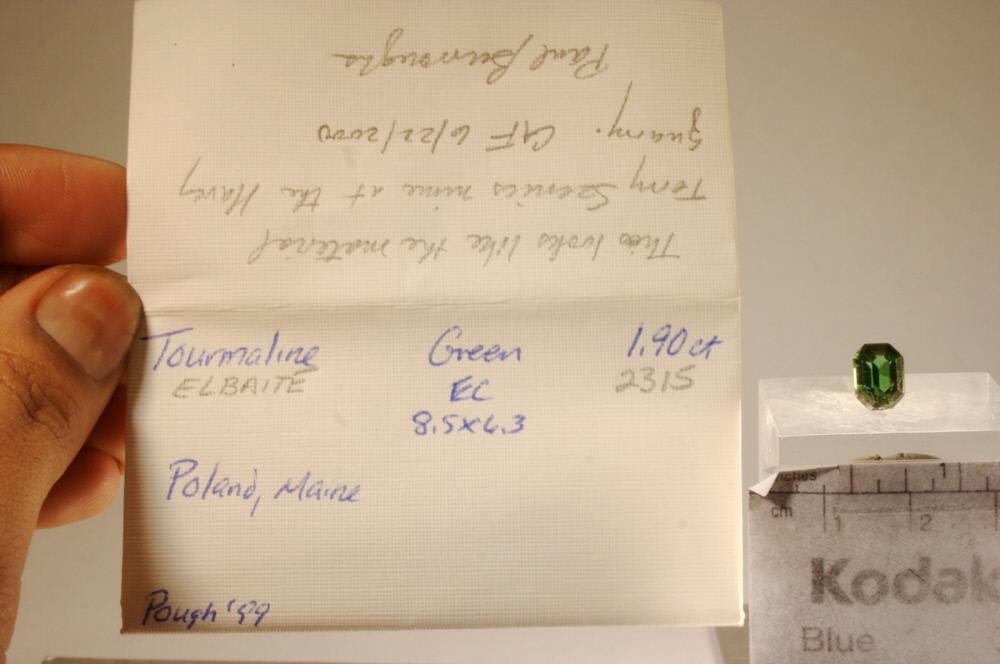 This looks like the material
Terry Szenics mine at the Havey
Quarry. GF 6/22/2000
Paul Burroughs
Tourmaline Green 1.90 ct
ELBAITE EC 2315
8.5x6.3
Poland, Maine
Pough '99
inches 1
cm 1 2
Kodak
Blue